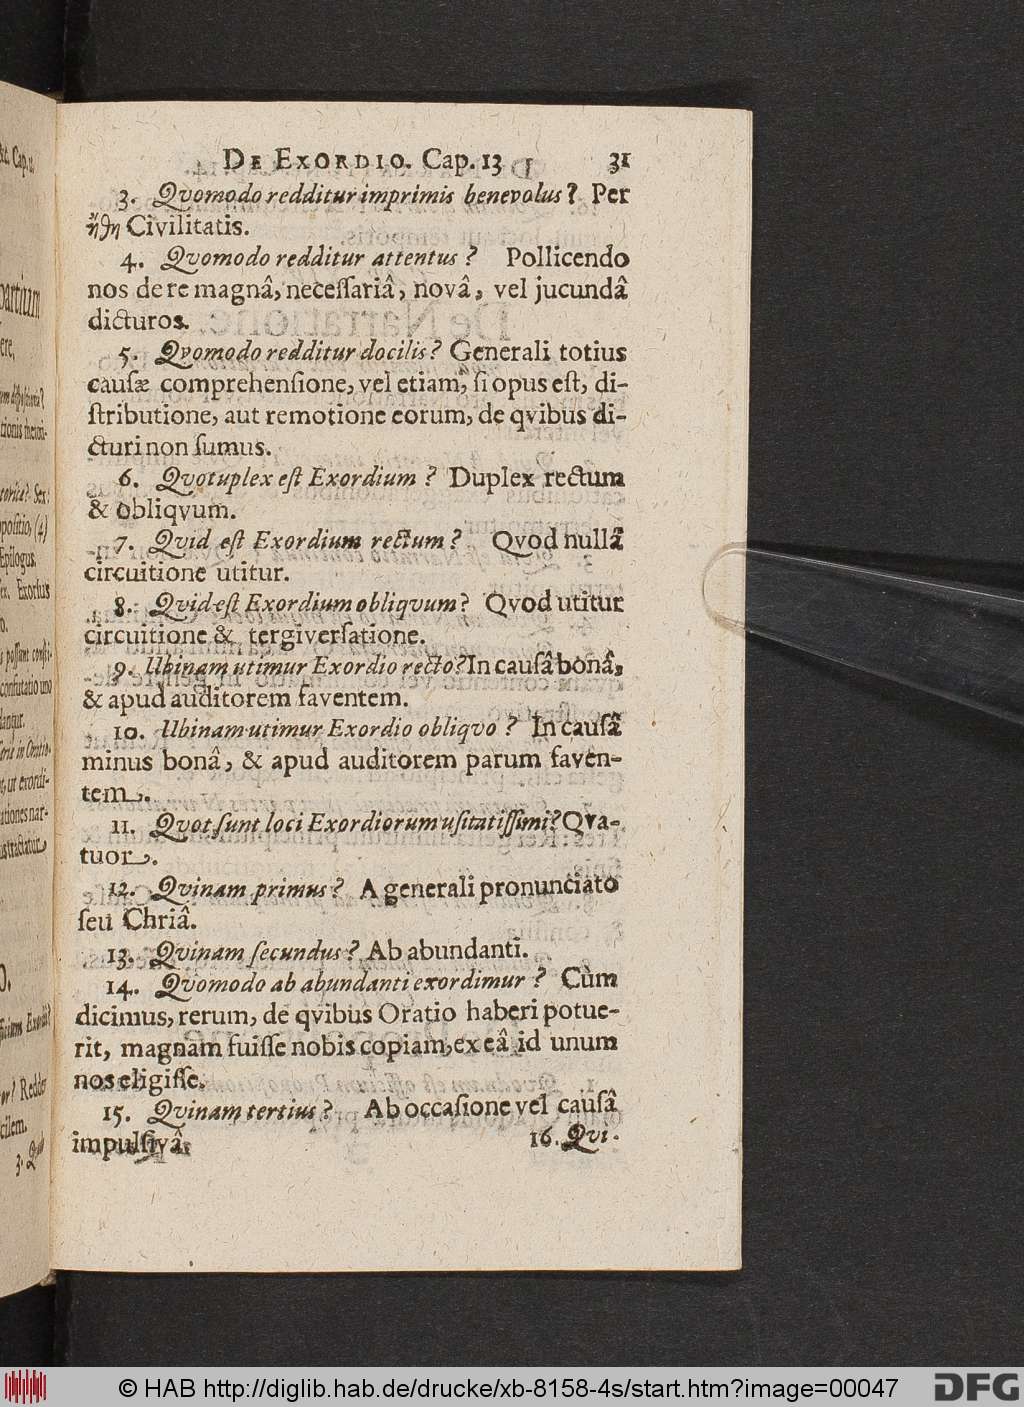 DE EXORDIO. Cap. 13 31
3. Qvomodo redditur imprimis benevolus? Per
ἤθη Civilitatis.
4. Qvomodo redditur attentus? Pollicendo
nos de re magnâ, neceſſariâ, novâ, vel jucundâ
dicturos.
5. Qvomodo redditur docilis? Generali totius
cauſæ comprehenſione, vel etiam, ſi opus eſt, di-
ſtributione, aut remotione eorum, de qvibus di-
cturi non ſumus.
6. Qvotuplex eſt Exordium? Duplex rectum
& obliqvum.
7. Qvid eſt Exordium rectum? Qvod nullâ
circuitione utitur.
8. Qvid eſt Exordium obliqvum? Qvod utitur
circuitione & tergiverſatione.
9. Ubinam utimur Exordio recto? In cauſâ bonâ,
& apud auditorem faventem.
10. Ubinam utimur Exordio obliqvo? In cauſâ
minus bonâ, & apud auditorem parum faven-
tem.
11. Qvot ſunt loci Exordiorum uſitatiſſimi? Qva-
tuor.
12. Qvinam primus? A generali pronunciato
ſeu Chriâ.
13. Qvinam ſecundus? Ab abundanti.
14. Qvomodo ab abundanti exordimur? Cùm
dicimus, rerum, de qvibus Oratio haberi potue-
rit, magnam fuiſſe nobis copiam, ex eâ id unum
nos eligiſſe.
15. Qvinam tertius? Ab occaſione vel cauſâ
impulſivâ.
16. Qvi-
© HAB http://diglib.hab.de/drucke/xb-8158-4s/start.htm?image=00047
DFG